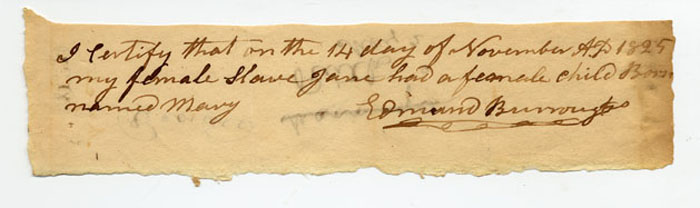 I Certify that on the 14 day of November AD 1825
my female Slave Jane had a female child Born
named Mary Edmund Burroughs